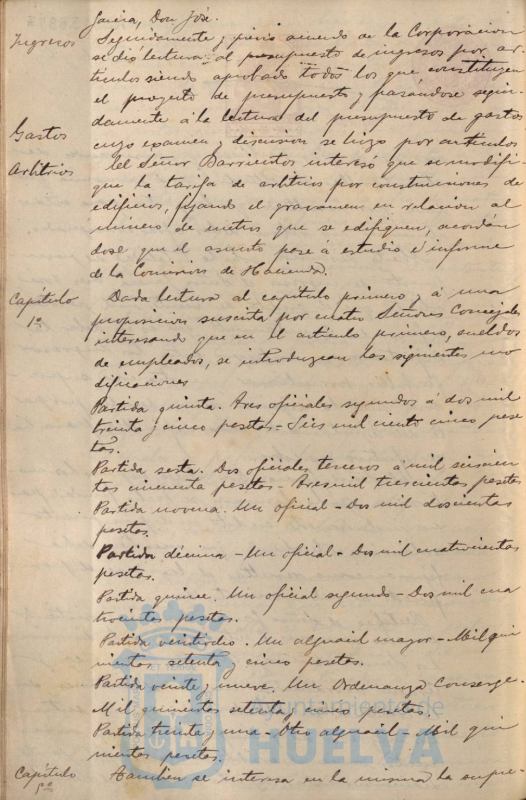 García, Don José.
Ingresos
Seguidamente y previo acuerdo de la Corporación
se dió lectura al presupuesto de ingresos por ar-
tículos siendo aprobado todos los que constituyen
el proyecto de presupuesto y pasandose segui-
Gastos
damente á la lectura del presupuesto de gastos
cuyo examen y discusion se hizo por artículos
Arbitrios
El Señor Barrientos interesó que se modifi-
que la tarifa de arbitrios por construcciones de
edificios, fijando el gravamen en relacion al
número de metros que se edifiquen, acordán
dose que el asunto pase á estudio é informe
de la Comision de Hacienda.
Capítulo 1º
Dada lectura al capítulo primero y á una
proposicion suscrita por cuatro Señores Concejales
interesando que en el artículo primero, sueldos
de empleados, se introduzcan las siguientes mo
dificaciones
Partida quinta. Tres oficiales segundos á dos mil
treinta y cinco pesetas - Seis mil ciento cinco pese
tas.
Partida sesta. Dos oficiales terceros á mil seiscien
tas cincuenta pesetas - Tres mil trescientas pesetas
Partida novena. Un oficial - Dos mil doscientas
pesetas.
Partida décima - Un oficial - Dos mil cuatrocientas
pesetas.
Partida quince. Un oficial segundo - Dos mil cua
trocientas pesetas.
Partida veintiocho. Un alguacil mayor - Mil qui
nientas setenta y cinco pesetas.
Partida veinte y nueve. Un Ordenanza Conserge.
Mil quinientas setenta y cinco pesetas.
Partida treinta y una - Otro alguacil - Mil qui
nientas pesetas.
Capítulo
Tambien se interesa en la misma la supre-
Ayuntamiento de
HUELVA